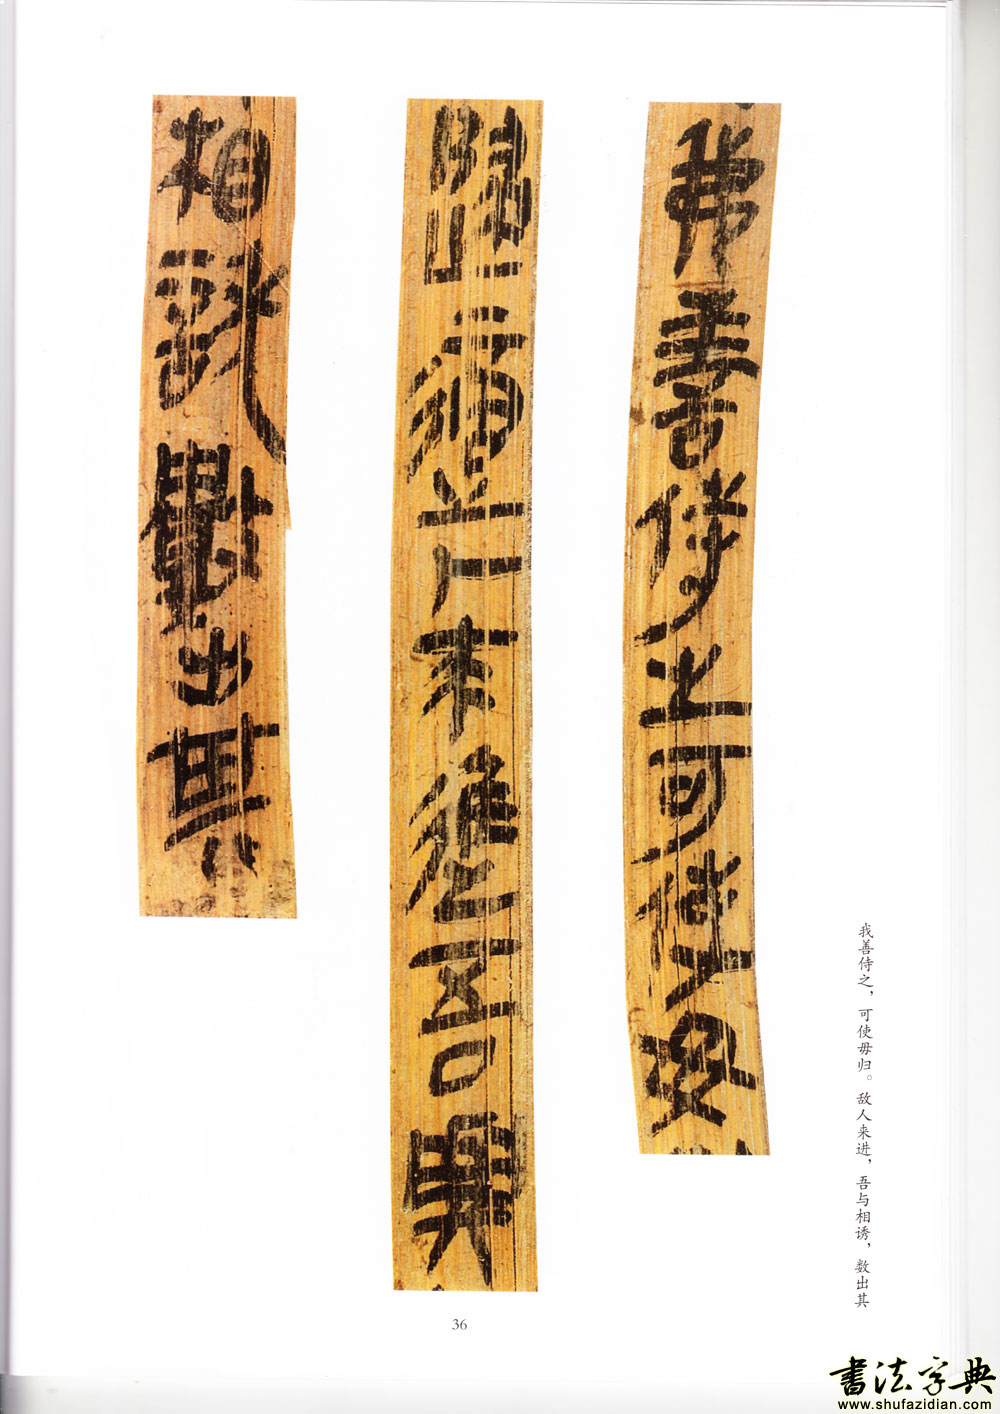 弗善侍之可使毋
歸適人來進吾與
相誘數出其
我善侍之，可使毋归。敌人来进，吾与相诱，数出其
36
书法字典
www.shufazidian.com